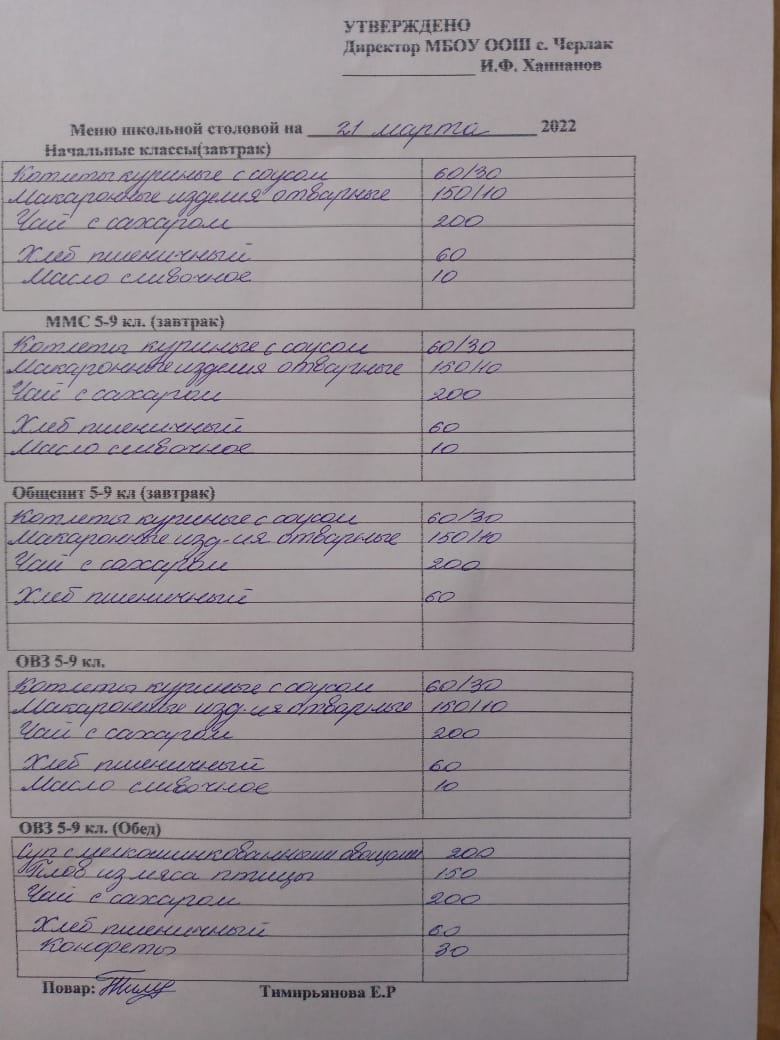 УТВЕРЖДЕНО
Директор МБОУ ООШ с. Черлак
_______________ И.Ф. Ханнанов
Меню школьной столовой на 21 марта 2022
Начальные классы(завтрак)
Котлеты куриные с соусом 60/30
Макаронные изделия отварные 150/10
Чай с сахаром 200
Хлеб пшеничный 60
Масло сливочное 10
ММС 5-9 кл. (завтрак)
Котлеты куриные с соусом 60/30
Макаронные изделия отварные 150/10
Чай с сахаром 200
Хлеб пшеничный 60
Масло сливочное 10
Общепит 5-9 кл (завтрак)
Котлеты куриные с соусом 60/30
Макаронные изд-ия отварные 150/10
Чай с сахаром 200
Хлеб пшеничный 60
ОВЗ 5-9 кл.
Котлеты куриные с соусом 60/30
Макаронные изд-ия отварные 150/10
Чай с сахаром 200
Хлеб пшеничный 60
Масло сливочное 10
ОВЗ 5-9 кл. (Обед)
Суп с мелкошинкованными овощами 200
Плов из мяса птицы 150
Чай с сахаром 200
Хлеб пшеничный 60
Конфеты 30
Повар: Тимирьянова Е.Р